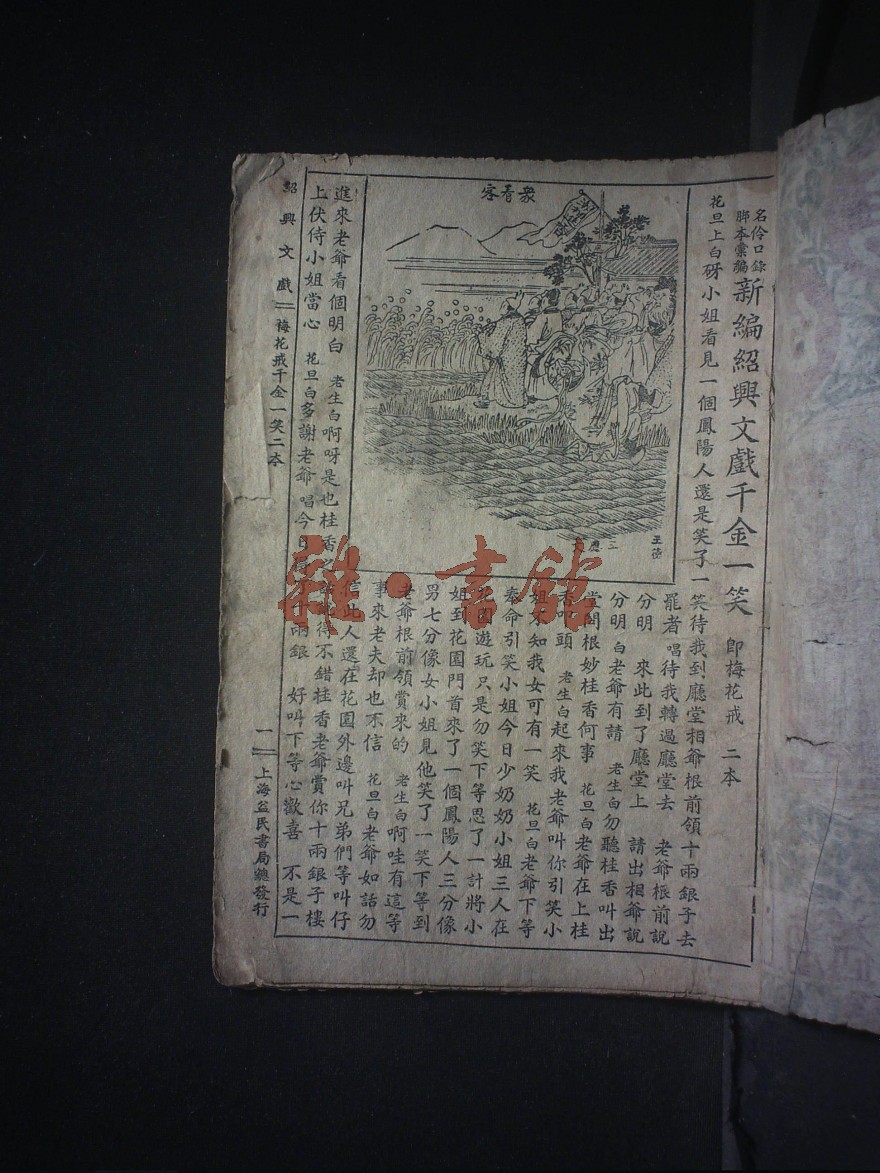 名伶口錄
腳本彙編
新編紹興文戲千金一笑
即梅花戒 二本
花旦上白砑小姐看見一個鳳陽人還是笑了一笑待我到廳堂相爺根前領十兩銀子去
罷者唱待我轉過廳堂去 老爺根前說
分明 來此到了廳堂上 請出相爺說
分明 白老爺有請 老生白勿聽桂香叫出
堂問根妙桂香何事 花旦白老爺在上桂
香叩頭 老生白起來我老爺叫你引笑小
姐不知我女可有一笑 花旦白老爺下等
奉命引笑小姐今日少奶奶小姐三人在
花園遊玩只是勿笑下等思了一計將小
姐到花園門首來了一個鳳陽人三分像
男七分像女小姐見他笑了一笑下等到
老爺根前領賞來的 老生白啊哇有這等
事來老夫却也不信 花旦白老爺如話勿
信此人還在花園外邊叫兄弟們等叫仔
進來老爺看個明白 老生白啊呀是也桂香之話說得不錯桂香老爺賞你十兩銀子樓
上伏侍小姐當心 花旦白多謝老爺 唱今日 十兩銀 好叫下等心歡喜 不是一
衆看客
王德
三應
紹興文戲 梅花戒千金一笑二本
一
上海益民書局總發行
雜·書館